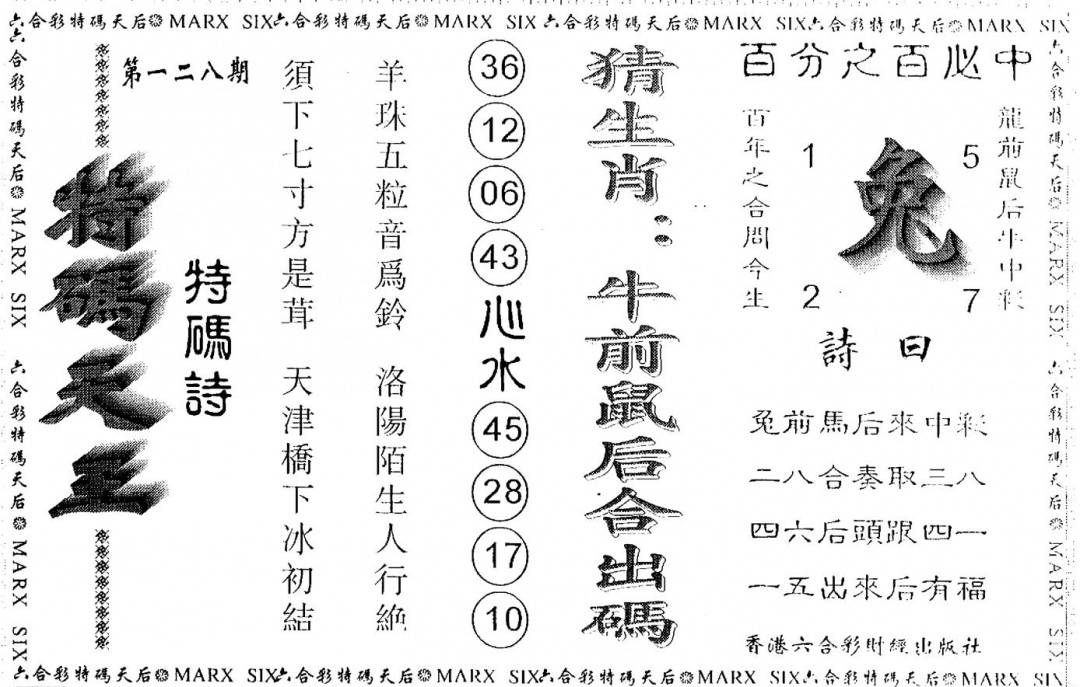 六合彩特碼天后❁MARX SIX六合彩特碼天后❁MARX SIX六合彩特碼天后❁MARX SIX六合彩特碼天后❁MARX SIX
六合彩特碼天后❁MARX SIX 六合彩特碼天后❁MARX SIX
第一二八期
特碼天王
特碼詩
須下七寸方是茸 天津橋下冰初結
羊珠五粒音爲鈴 洛陽陌生人行絶
36
12
06
43
心水
45
28
17
10
猜生肖：牛前鼠后合出碼
百分之百必中
百年之合問今生
1
5
兔
2
7
龍前鼠后牛中彩
詩曰
兔前馬后來中彩
二八合奏取三八
四六后頭跟四一
一五出來后有福
香港六合彩財經出版社
六合彩特碼天后❁MARX SIX 六合彩特碼天后❁MARX SIX
六合彩特碼天后❁MARX SIX六合彩特碼天后❁MARX SIX六合彩特碼天后❁MARX SIX六合彩特碼天后❁MARX SIX